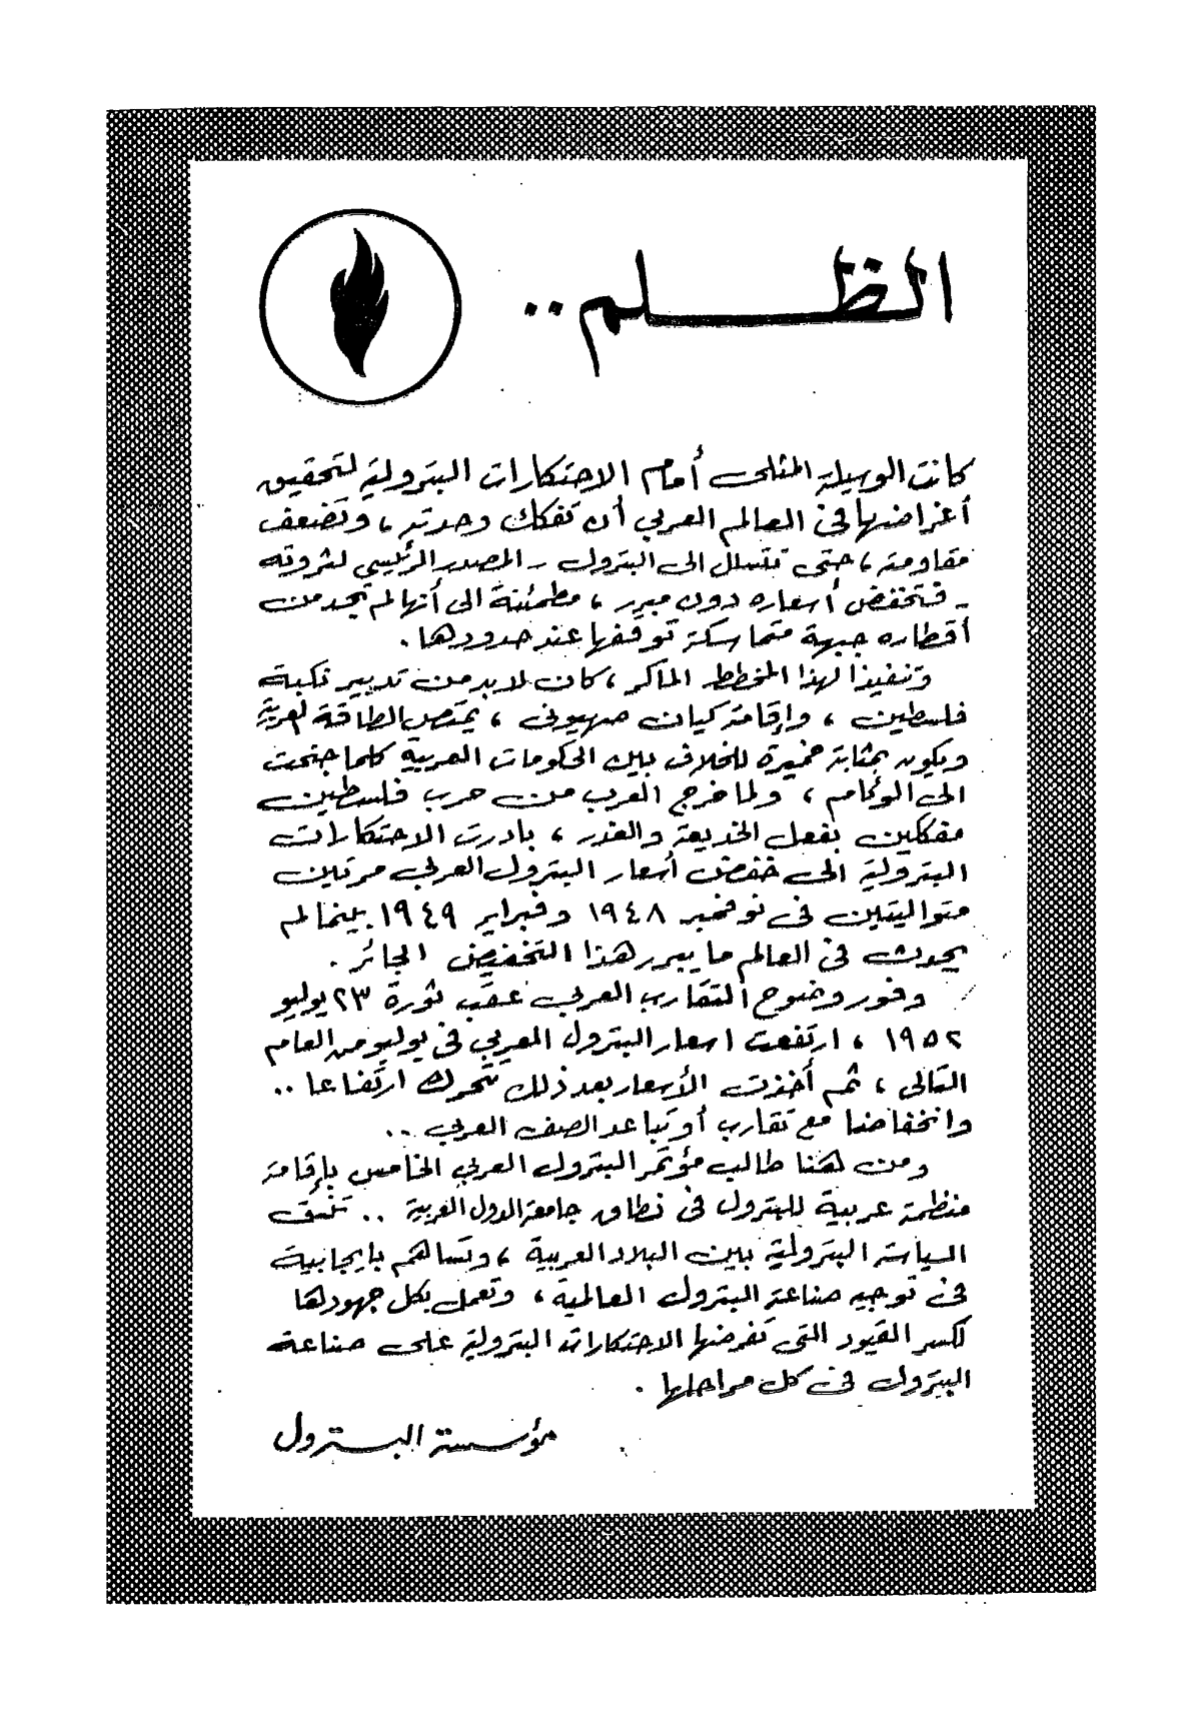 الظلم ..
كانت الوسيلة المثلى أمام الاحتكارات البترولية لتحقيق
أغراضها فى العالم العربي أن تفكك وحدته ، وتضعف
مقاومته ، حتى تتسلل الى البترول - المصدر الرئيسي لثروته
- فتخفض أسعاره دون مبرر ، مطمئنة الى أنها لم تجد من
أقطاره جبهة متماسكة توقفها عند حدودها .
وتنفيذا لهذا المخطط الماكر ، كان لابد من تدبير نكبة
فلسطين ، وإقامة كيان صهيونى ، يمتص الطاقة العربية
ويكون بمثابة خميرة للخلاف بين الحكومات العربية كلما جنحت
الى الوئام ، ولما خرج العرب من حرب فلسطين
مفككين بفعل الخديعة والغدر ، بادرت الاحتكارات
البترولية الى خفض أسعار البترول العربي مرتين
متواليتين فى نوفمبر ١٩٤٨ وفبراير ١٩٤٩ بينما لم
يحدث فى العالم ما يبرر هذا التخفيض الجائر .
وفور وضوح التقارب العربي عقب ثورة ٢٣ يوليو
١٩٥٢ ، ارتفعت اسعار البترول العربي فى يوليو من العام
التالى ، ثم أخذت الأسعار بعد ذلك تتحرك ارتفاعا ..
وانخفاضا مع تقارب أو تباعد الصف العربي ..
ومن هنا طالب مؤتمر البترول العربي الخامس بإقامة
منظمة عربية للبترول فى نطاق جامعة الدول العربية .. تنسق
السياسة البترولية بين البلاد العربية ، وتساهم بايجابية
فى توجيه صناعة البترول العالمية ، وتعمل بكل جهودها
لكسر القيود التى تفرضها الاحتكارات البترولية على صناعة
البترول فى كل مراحلها .
مؤسسة البترول